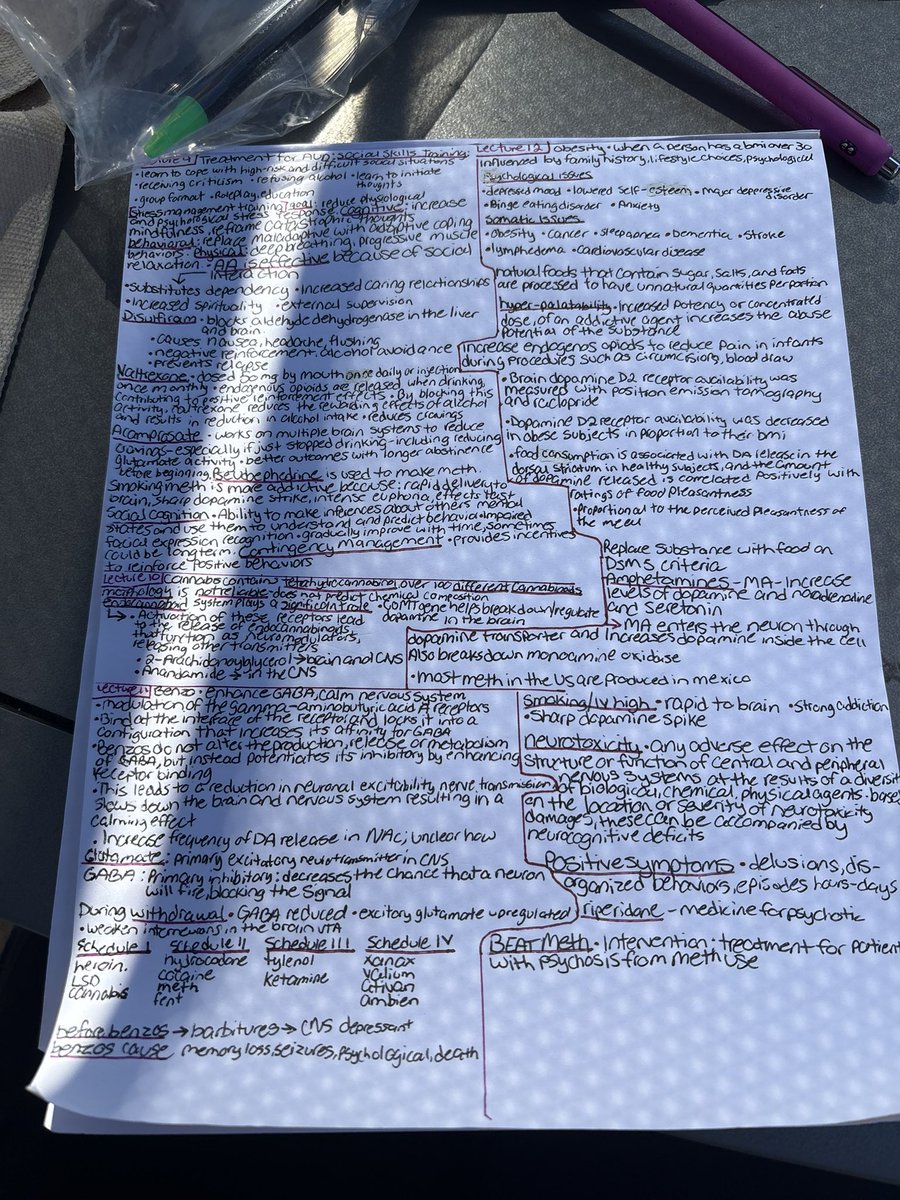 Treatment for AUD: Social Skills Training:
• learn to cope with high-risk and difficult social situations
• receiving criticism • refusing alcohol • learn to initiate
thoughts
• group format • Roleplay, education
Stress management training Goal: reduce physiological
and psychological stress response. Cognitive: increase
mindfulness, reframe catastrophic thoughts
behavioral: replace maladaptive with adaptive coping
behaviors. Physical: deep breathing, progressive muscle
relaxation • AA is effective because of social
interaction
• Substitutes dependency • Increased caring relationships
• Increased spirituality • external supervision
Disulfiram • blocks aldehyde dehydrogenase in the liver
and brain.
• causes nausea, headache, flushing
• negative reinforcement. alcohol avoidance
• prevents relapse
Naltrexone • dosed 50mg by mouth once daily or injection
once monthly • endogenous opioids are released when drinking,
contributing to positive reinforcement effects • By blocking this
activity, naltrexone reduces the rewarding effects of alcohol
and results in reduction in alcohol intake • reduces cravings
Acamprosate • works on multiple brain systems to reduce
cravings - especially if just stopped drinking - including reducing
glutamate activity • better outcomes with longer abstinence
before beginning. is used to make meth.
Smoking meth is more addictive because: rapid delivery to
brain, sharp dopamine strike, intense euphoria, effects fast
Social cognition • Ability to make inferences about others mental
states and use them to understand and predict behavior • Impaired
facial expression recognition • gradually improve with time, sometimes
could be longterm Contingency management • provides incentives
to reinforce positive behaviors
Lecture 10 Cannabis contains over 100 different Cannabinoids
morphology is not reliable - does not predict chemical composition
endocannabid system plays a significant role • COMT gene helps break down/regulate
dopamine in the brain
↳ • Activation of these receptors lead
to the release of endocannabinoids
that function as neuromodulators,
releasing other transmitters
• 2-Arachidonoylglycerol → brain and CNS
• Anandamide → in the CNS
Lecture 11 Benzo: enhance GABA, calm nervous system
• modulation of the gamma-aminobutyric acid A receptors
• Bind at the interface of the receptor and locks it into a
configuration that increases its affinity for GABA
• Benzos do not alter the production, release or metabolism
of GABA, but instead potentiates its inhibitory by enhancing
receptor binding
• This leads to a reduction in neuronal excitability, nerve transmission
slows down the brain and nervous system resulting in a
calming effect
• Increase frequency of DA release in NAC; unclear how
Glutamate: Primary excitatory neurotransmitter in CNS
GABA: Primary inhibitory: decreases the chance that a neuron
will fire, blocking the signal
During withdrawal • GABA reduced • excitory glutamate upregulated
• weaken interneurons in the brain VTA
Schedule I Schedule II Schedule III Schedule IV
heroin. hydrocodone tylenol xanax
LSD cocaine ketamine valium
cannabis meth ativan
fent ambien
before benzos → barbitures → CNS depressant
benzos cause memory loss, seizures, psychological, death
Lecture 12 obesity • when a person has a bmi over 30
influenced by family history, lifestyle choices, psychological
Psychological issues
• depressed mood • lowered self-esteem • Major depressive
disorder
• Binge eating disorder • Anxiety
Somatic issues
• Obesity • cancer • sleep apnea • Dementia • Stroke
• lymphedema • cardiovascular disease
natural foods that contain sugar, salts, and fats
are processed to have unnatural quantities per portion
hyper-palatability • Increased potency or concentrated
dose, of an addictive agent increases the abuse
potential of the substance
Increase endogenos opiods to reduce pain in infants
during procedures such as circumcisions, blood draw
• Brain dopamine D2 receptor availability was
measured with position emission tomography
and raclopride
• Dopamine D2 receptor availability was decreased
in obese subjects in proportion to their bmi
• food consumption is associated with DA release in the
dorsal striatum in healthy subjects, and the amount
of dopamine released is correlated positively with
ratings of food pleasantness
• Proportional to the perceived pleasantness of
the meal
Replace substance with food on
DSM5 criteria
Amphetamines - MA - Increase
levels of dopamine and noadrenaline
and seretonin
→ MA enters the neuron through
dopamine transporter and increases dopamine inside the cell
Also breaks down monoamine oxidase
• most meth in the US are produced in mexico
Smoking/IV high • rapid to brain • Strong addiction
• Sharp dopamine spike
neurotoxicity • Any adverse effect on the
structure or function of central and peripheral
nervous systems at the results of a diversity
of biological, chemical, physical agents • based
on the location or severity of neurotoxicity
damages, these can be accompanied by
neurocognitive deficits
Positive symptoms • delusions, dis-
organized behaviors, episodes hours-days
riperidane - medicine for psychotic
BEAT Meth • Intervention: treatment for patient
with psychosis from meth use